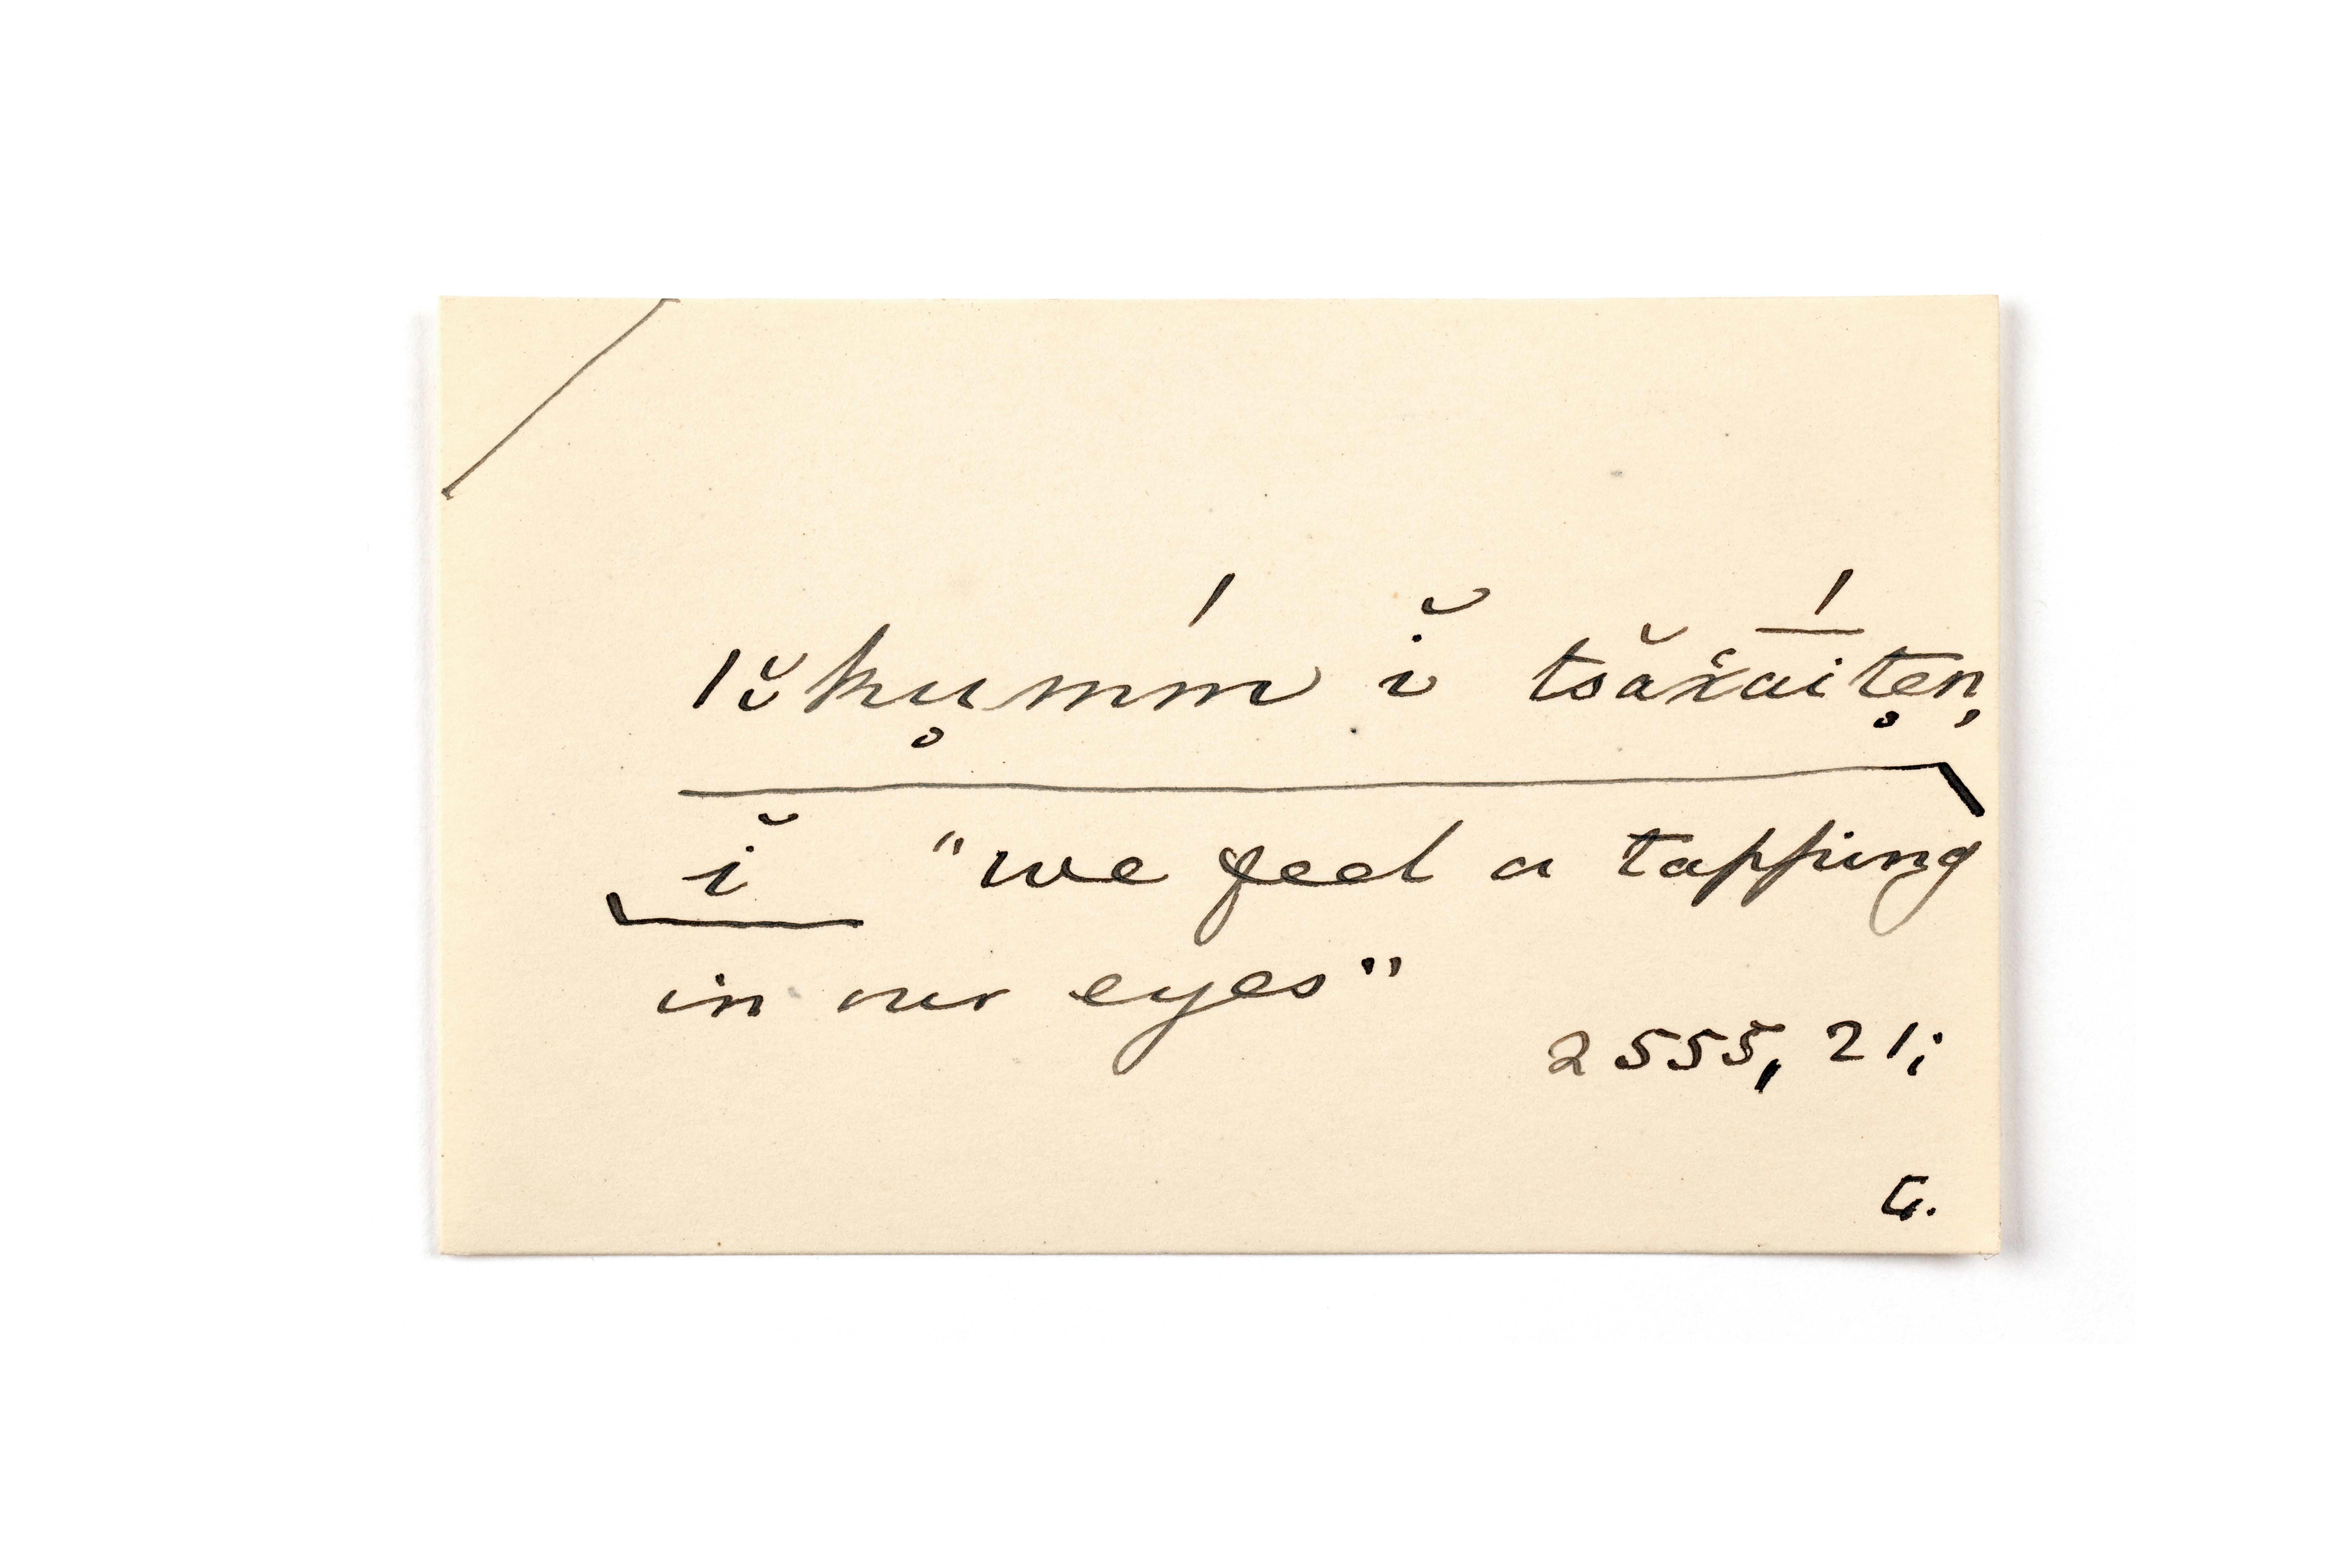 ǀĭku̥mḿ ĭ tsăx̌ai̅́te̥n,
ĭ "we feel a tapping
in our eyes"
2555, 21;
G.